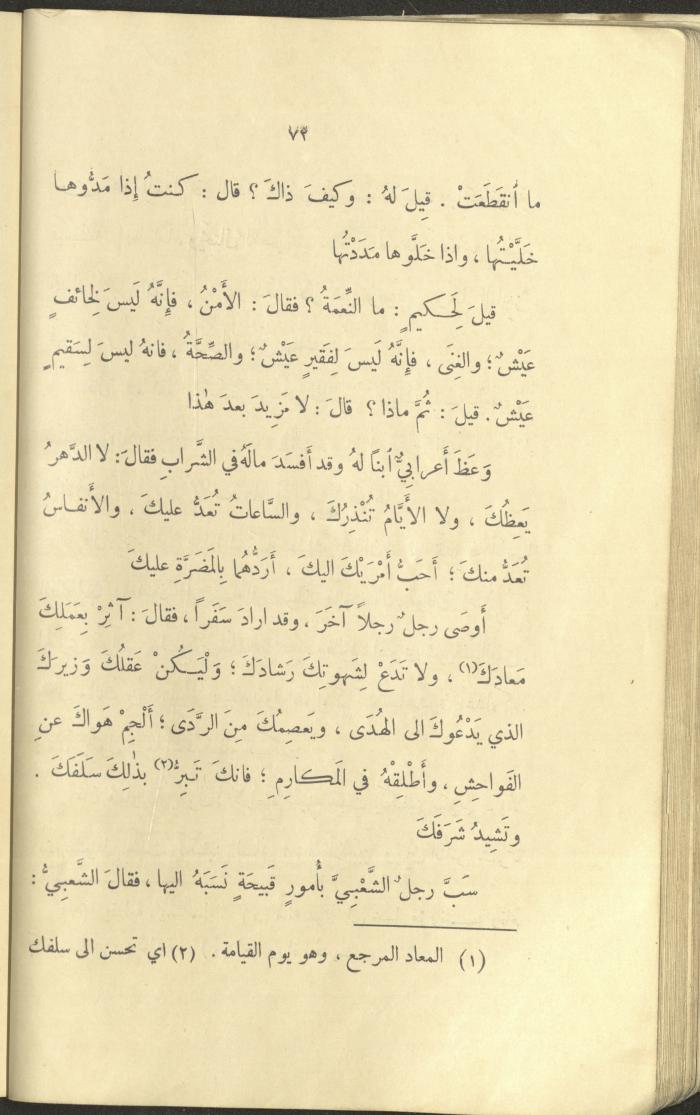 ٧٣
ما ٱنقَطَعَتْ . قِيلَ لهُ : وكيفَ ذاكَ ؟ قال : كنتُ إِذا مَدُّوها
خَلَّيْتُها ، واذا خَلَّوها مَدَدْتُها
قيلَ لِحَكيمٍ : ما النِّعمَةُ ؟ فقالَ : الأَمْنُ ، فإِنَّهُ لَيسَ لِخائفٍ
عَيْشٌ ؛ والغِنَى ، فإِنَّهُ لَيسَ لِفَقيرٍ عَيْشٌ ؛ والصِّحَّةُ ، فانهُ ليسَ لِسَقيمٍ
عَيْشٌ . قيلَ : ثُمَّ ماذا ؟ قالَ : لا مَزِيدَ بعدَ هٰذا
وَعَظَ أَعرابيٌّ ٱبناً لهُ وقد أَفسَدَ مالَهُ في الشَّرابِ فقالَ : لا الدَّهرُ
يَعِظُكَ ، ولا الأَيَّامُ تُنْذِرُكَ ، والسَّاعاتُ تُعَدُّ عليكَ ، والأَنفاسُ
تُعَدُّ منكَ ؛ أَحَبُّ أَمْرَيْكَ اليكَ ، أَرَدُّهُما بِالمَضَرَّةِ عليكَ
أَوصَى رجلٌ رجلاً آخَرَ ، وقد ارادَ سَفَراً ، فقالَ : آثِرْ بِعَمَلِكَ
مَعادَكَ (١) ، ولا تَدَعْ لِشَهوتِكَ رَشادَكَ ؛ وَلْيَكُنْ عَقلُكَ وَزيرَكَ
الذي يَدْعُوكَ الى الهُدَى ، ويَعصِمُكَ مِنَ الرَّدَى ؛ أَلْجِمْ هَواكَ عنِ
الفَواحِشِ ، وأَطْلِقْهُ في المَكارِمِ ؛ فانكَ تَبِرُّ (٢) بذٰلِكَ سَلَفَكَ .
وتَشِيدُ شَرَفَكَ
سَبَّ رجلٌ الشَّعْبِيَّ بأُمورٍ قَبيحَةٍ نَسَبَهُ اليها ، فقالَ الشَّعبِيُّ :
(١) المعاد المرجع ، وهو يوم القيامة . (٢) اي تحسن الى سلفك